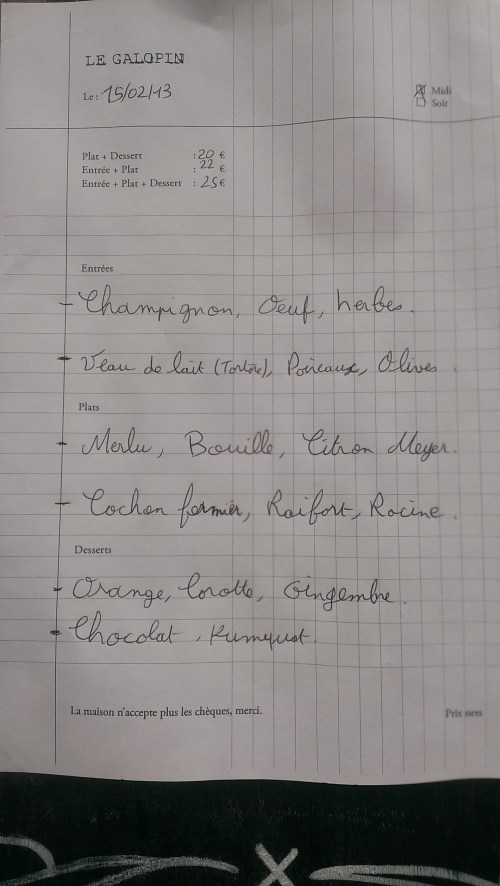 LE GALOPIN
Le : 15/02/13
Midi
Soir
Plat + Dessert : 20 €
Entrée + Plat : 22 €
Entrée + Plat + Dessert : 25 €
Entrées
- Champignon, Oeuf, herbes.
- Veau de lait (Tartare), Poireaux, Olives
Plats
- Merlu, Bouille, Citron Meyer.
- Cochon fermier, Raifort, Racine.
Desserts
- Orange, Carotte, Gingembre.
- Chocolat, Kumquat.
La maison n'accepte plus les chèques, merci.
Prix nets